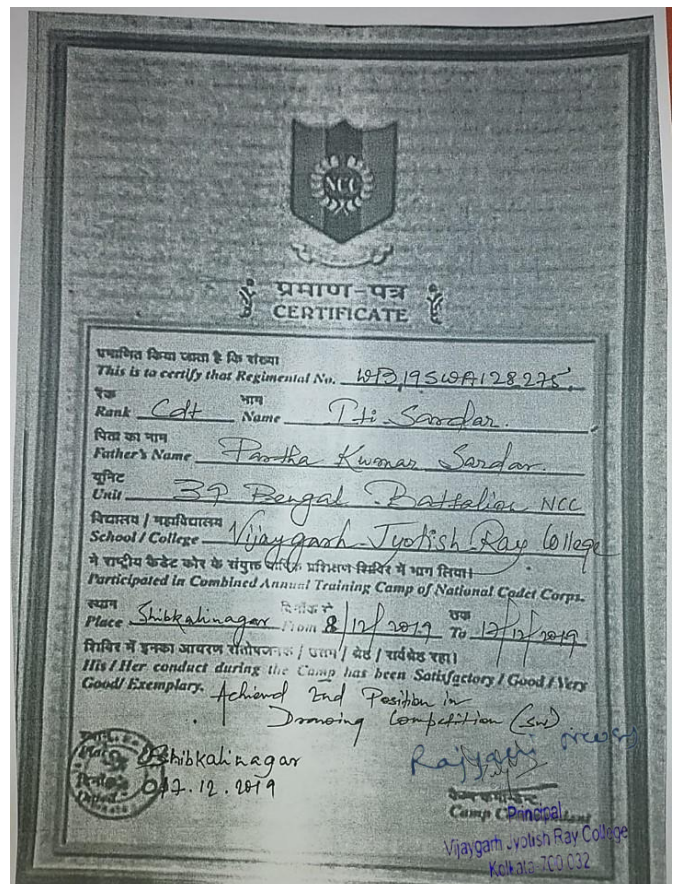 NCC
प्रमाण-पत्र
CERTIFICATE
प्रमाणित किया जाता है कि संख्या
This is to certify that Regimental No. WB19SWA128275
रैंक भाग
Rank Cdt Name Iti Sardar.
पिता का नाम
Father's Name Partha Kumar Sardar.
यूनिट
Unit 37 Bengal Battalion NCC
विद्यालय / महाविद्यालय
School / College Vijaygarh Jyotish Ray College
ने राष्ट्रीय कैडेट कोर के संयुक्त वार्षिक प्रशिक्षण शिविर में भाग लिया।
Participated in Combined Annual Training Camp of National Cadet Corps.
स्थान दिनाँक से तक
Place Shibkalinagar From 8/12/2019 To 17/12/2019
शिविर में इनका आचरण संतोषजनक / उत्तम / श्रेष्ठ / सर्वश्रेष्ठ रहा।
His / Her conduct during the Camp has been Satisfactory / Good / Very
Good/ Exemplary. Achieved 2nd Position in
Drawing Competition (SW)
Place Shibkalinagar
17.12.2019
Camp
Principal
Vijaygarh Jyotish Ray College
Kolkata-700 032